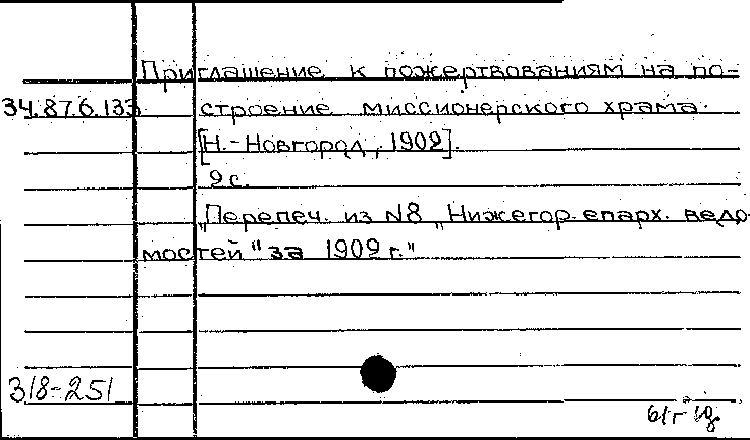 Приглашение к пожертвованиям на по-
34.87.6.133 строение миссионерского храма.
[Н.-Новгород, 1909].
9 с.
„Перепеч. из N8 „Нижегор. епарх. ведо-
мостей" за 1909 г."
318-251